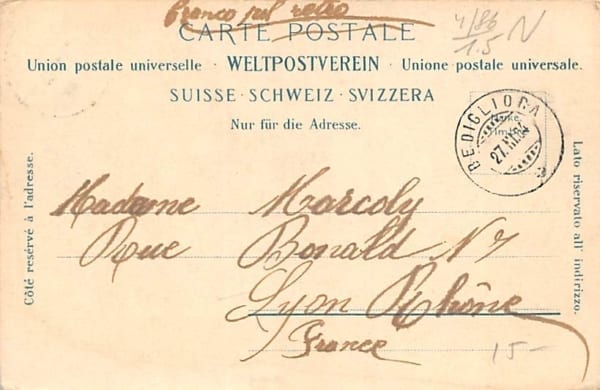 franco sul retro
CARTE POSTALE
Union postale universelle · WELTPOSTVEREIN · Unione postale universale.
SUISSE · SCHWEIZ · SVIZZERA
Nur für die Adresse.
4/86
1.5 N
BEDIGLIORA
27.III.04
Côté resérvé à l'adresse.
Lato riservato all' indirizzo.
Madame Marcoly
Rue Bonald N 7
Lyon Rhône
France
15-